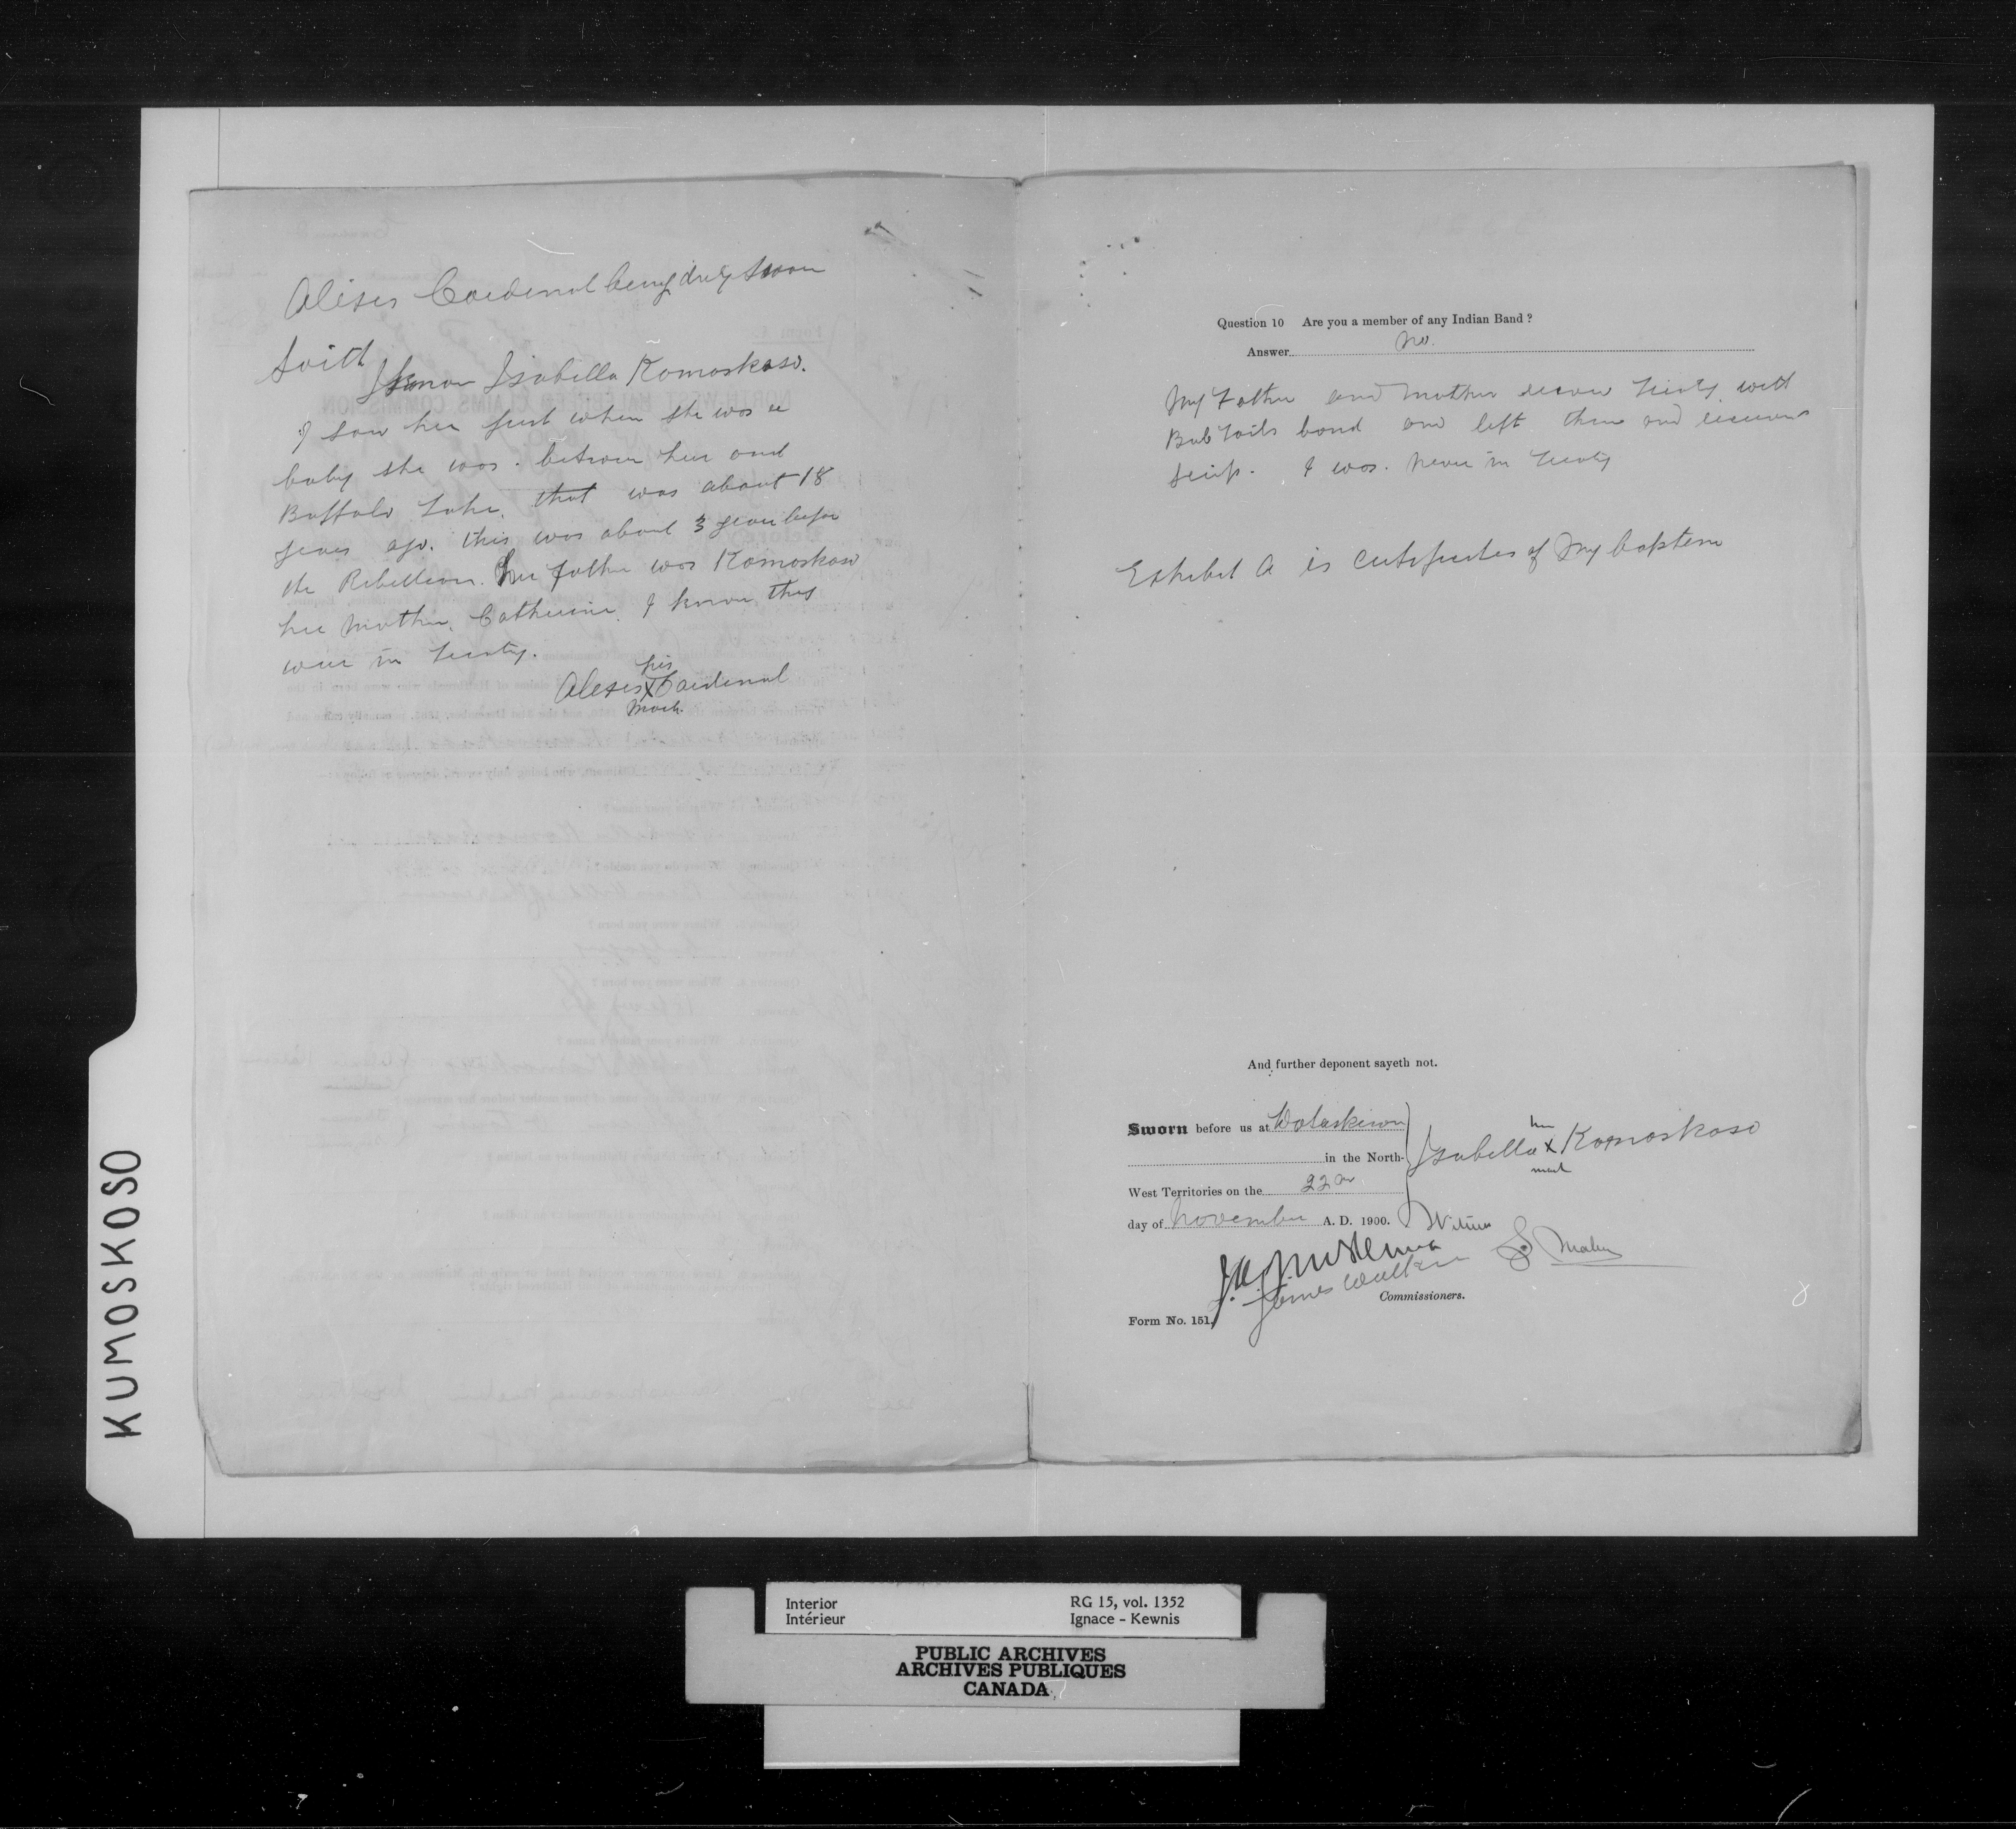 Alexis Cardinal being duly sworn
saith I know Isabella Komoskoso.
I saw her first when she was a
baby she was. between here and
Buffalo Lake, that was about 18
years ago. this was about 3 years before
the Rebellion. her father was Komoskoso
her mother, Catherine. I know they
were in treaty.
his
Alexis X Cardinal
mark.
Question 10 Are you a member of any Indian Band?
Answer No.
My Father and mother treaty with
Bob Tails band and left them and
scrip. I was. never in treaty
Exhibit A is certificate of my baptism
And further deponent sayeth not.
Sworn before us at Wetaskiwin
in the North-
West Territories on the 22nd
day of November A. D. 1900.
her
Isabella X Komoskoso
mark
Witness
J.A. McKenna
James Walker
Commissioners.
Form No. 151.
KUMOSKOSO
Interior
Intérieur
RG 15, vol. 1352
Ignace - Kewnis
PUBLIC ARCHIVES
ARCHIVES PUBLIQUES
CANADA